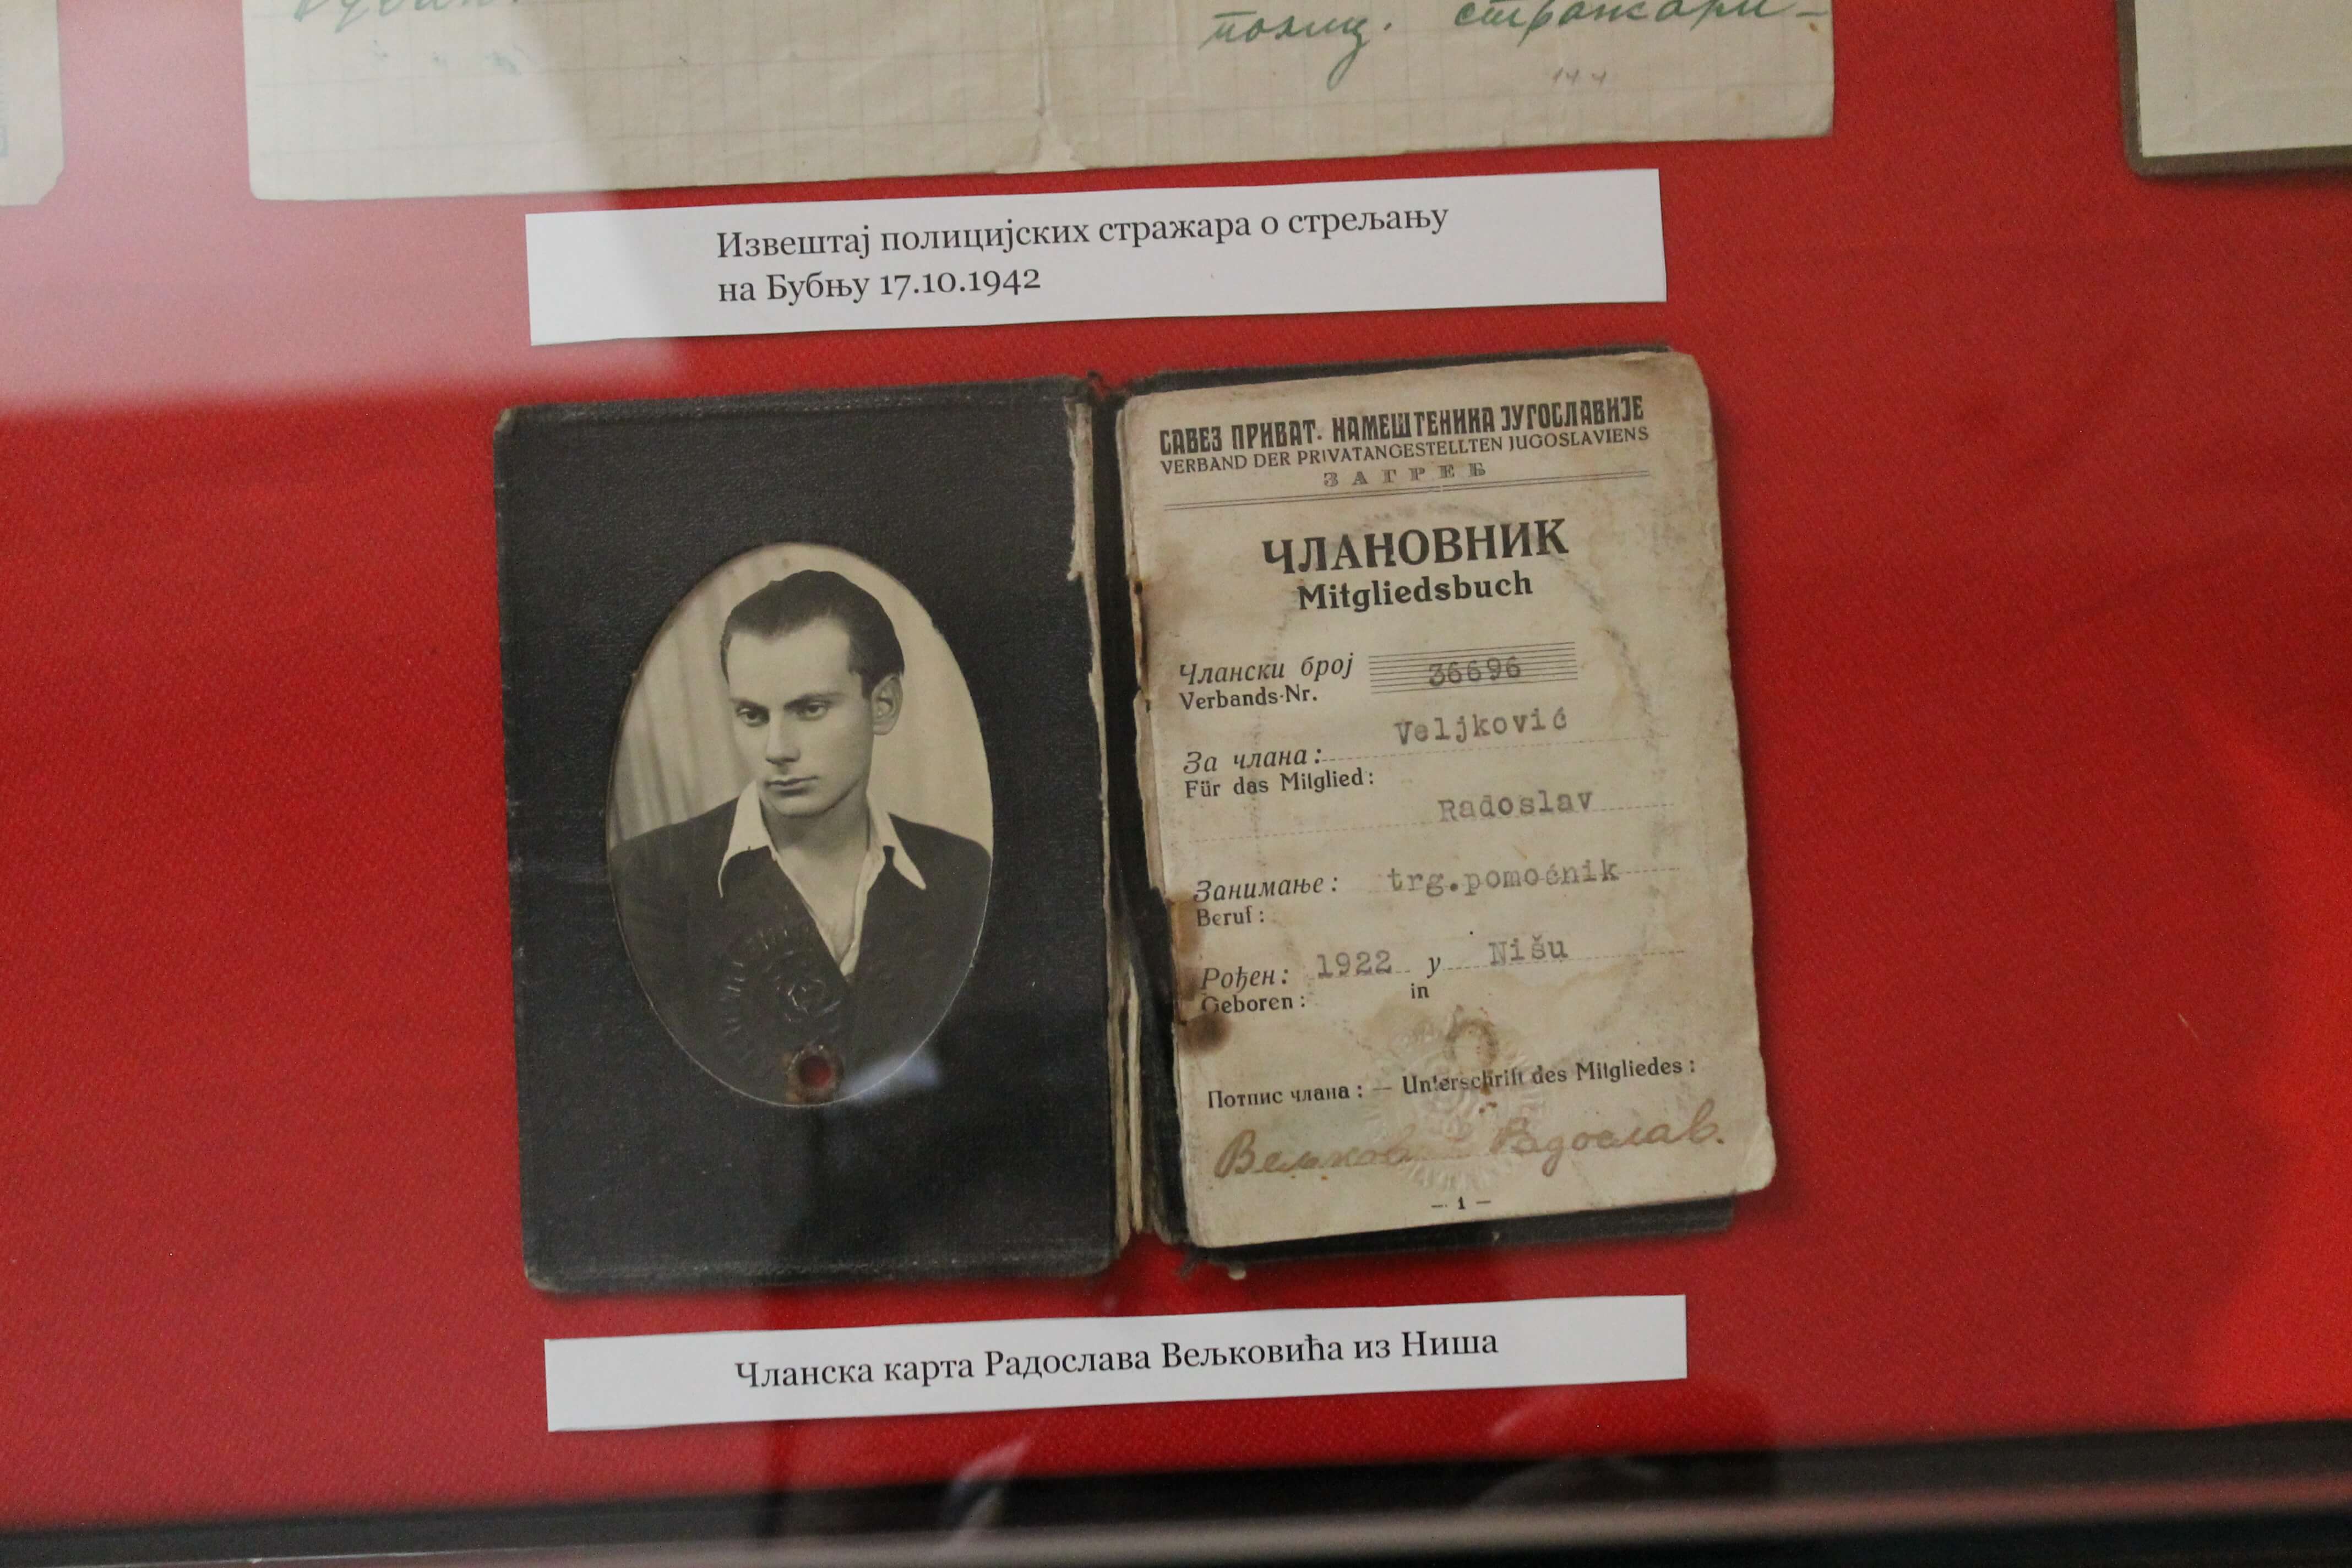 полиц. стражари-
Извештај полицијских стражара о стрељању
на Бубњу 17.10.1942
САВЕЗ ПРИВАТ. НАМЕШТЕНИКА ЈУГОСЛАВИЈЕ
VERBAND DER PRIVATANGESTELLTEN JUGOSLAVIENS
ЗАГРЕБ
ЧЛАНОВНИК
Mitgliedsbuch
Члански број 36696
Verbands-Nr.
Veljković
За члана:
Für das Mitglied:
Radoslav
Занимање: trg.pomoćnik
Beruf:
Рођен: 1922 у Nišu
Geboren: in
Потпис члана: — Unterschrift des Mitgliedes:
Вељковић Радослав.
— 1 —
Чланска карта Радослава Вељковића из Ниша